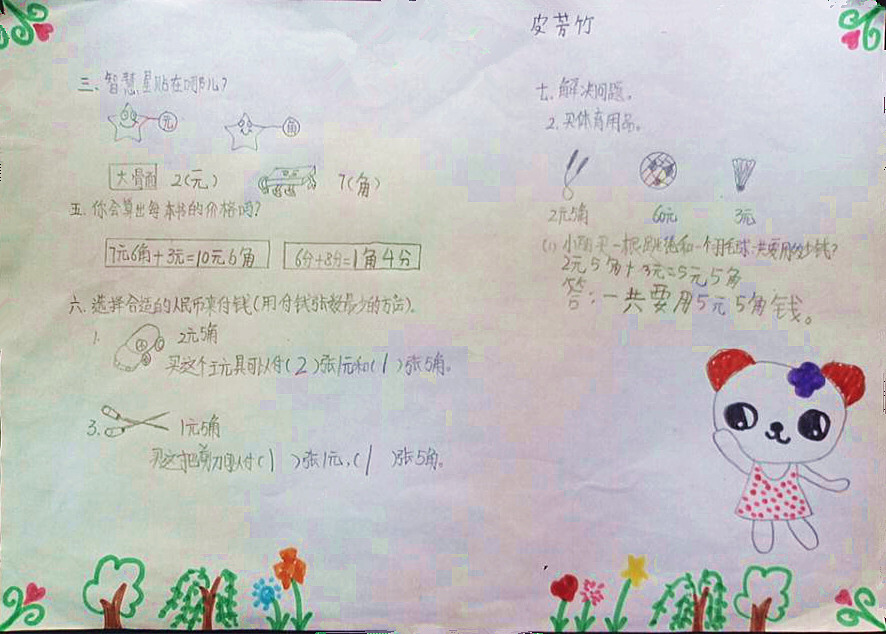 皮芳竹
三、智慧星贴在哪儿?
元
角
大骨面 2(元) 7(角)
五.你会算出每本书的价格吗?
7元6角+3元=10元6角 6分+8分=1角4分
六、选择合适的人民币来付钱(用付钱张数最少的方法).
1. 2元5角
买这个玩具可以付(2)张1元和(1)张5角。
3. 1元5角
买这把剪刀可以付(1)张1元,(1)张5角。
七.解决问题。
2.买体育用品。
2元5角 60元 3元
(1)小丽买一根跳绳和一个羽毛球一共要用多少钱?
2元5角+3元=5元5角
答:一共要用5元5角钱。